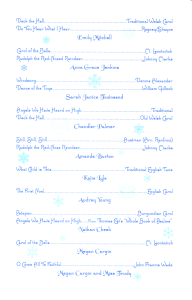 Deck the Hall Traditional Welsh Carol
Do You Hear What I Hear Regney/Shayne
Emily Mitchell
Carol of the Bells M. Leontovich
Rudolph the Red-Nosed Reindeer Johnny Marks
Anna Grace Jenkins
Windsong Dennis Alexander
Dance of the Toys William Gillock
Sarah Janice Townsend
Angels We Have Heard on High Traditional
Deck the Hall Old Welsh Carol
Chandler Palmer
Still, Still, Still Austrian
Rudolph the Red-Nosed Reindeer Johnny Marks
Amanda Barker
What Child is This Traditional English Tune
Katie Lyle
The First Noel English Carol
Audrey Young
Patapan Burgundian Carol
Angels We Have Heard on High
Nathan Cheek
Carol of the Bells M. Leontovich
Megan Cargin
O Come All Ye Faithful John Francis Wade
Megan Cargin and Miss Trudy